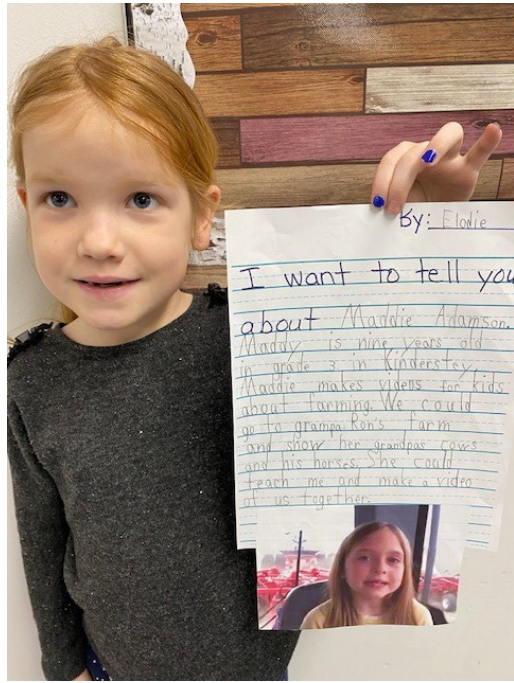 By: Elodie
I want to tell you
about Maddie Adamson.
Maddy is nine years old
in grade 3 in Kinderstey.
Maddie makes videos for kids
about farming. We could
go to grampa Ron's farm
and show her grandpas cows
and his horses. She could
teach me and make a video
of us together.